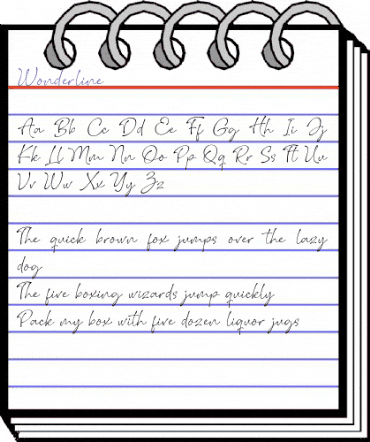 Wonderline
Aa Bb Cc Dd Ee Ff Gg Hh Ii Jj
Kk Ll Mm Nn Oo Pp Qq Rr Ss Tt Uu
Vv Ww Xx Yy Zz
The quick brown fox jumps over the lazy
dog
The five boxing wizards jump quickly
Pack my box with five dozen liquor jugs